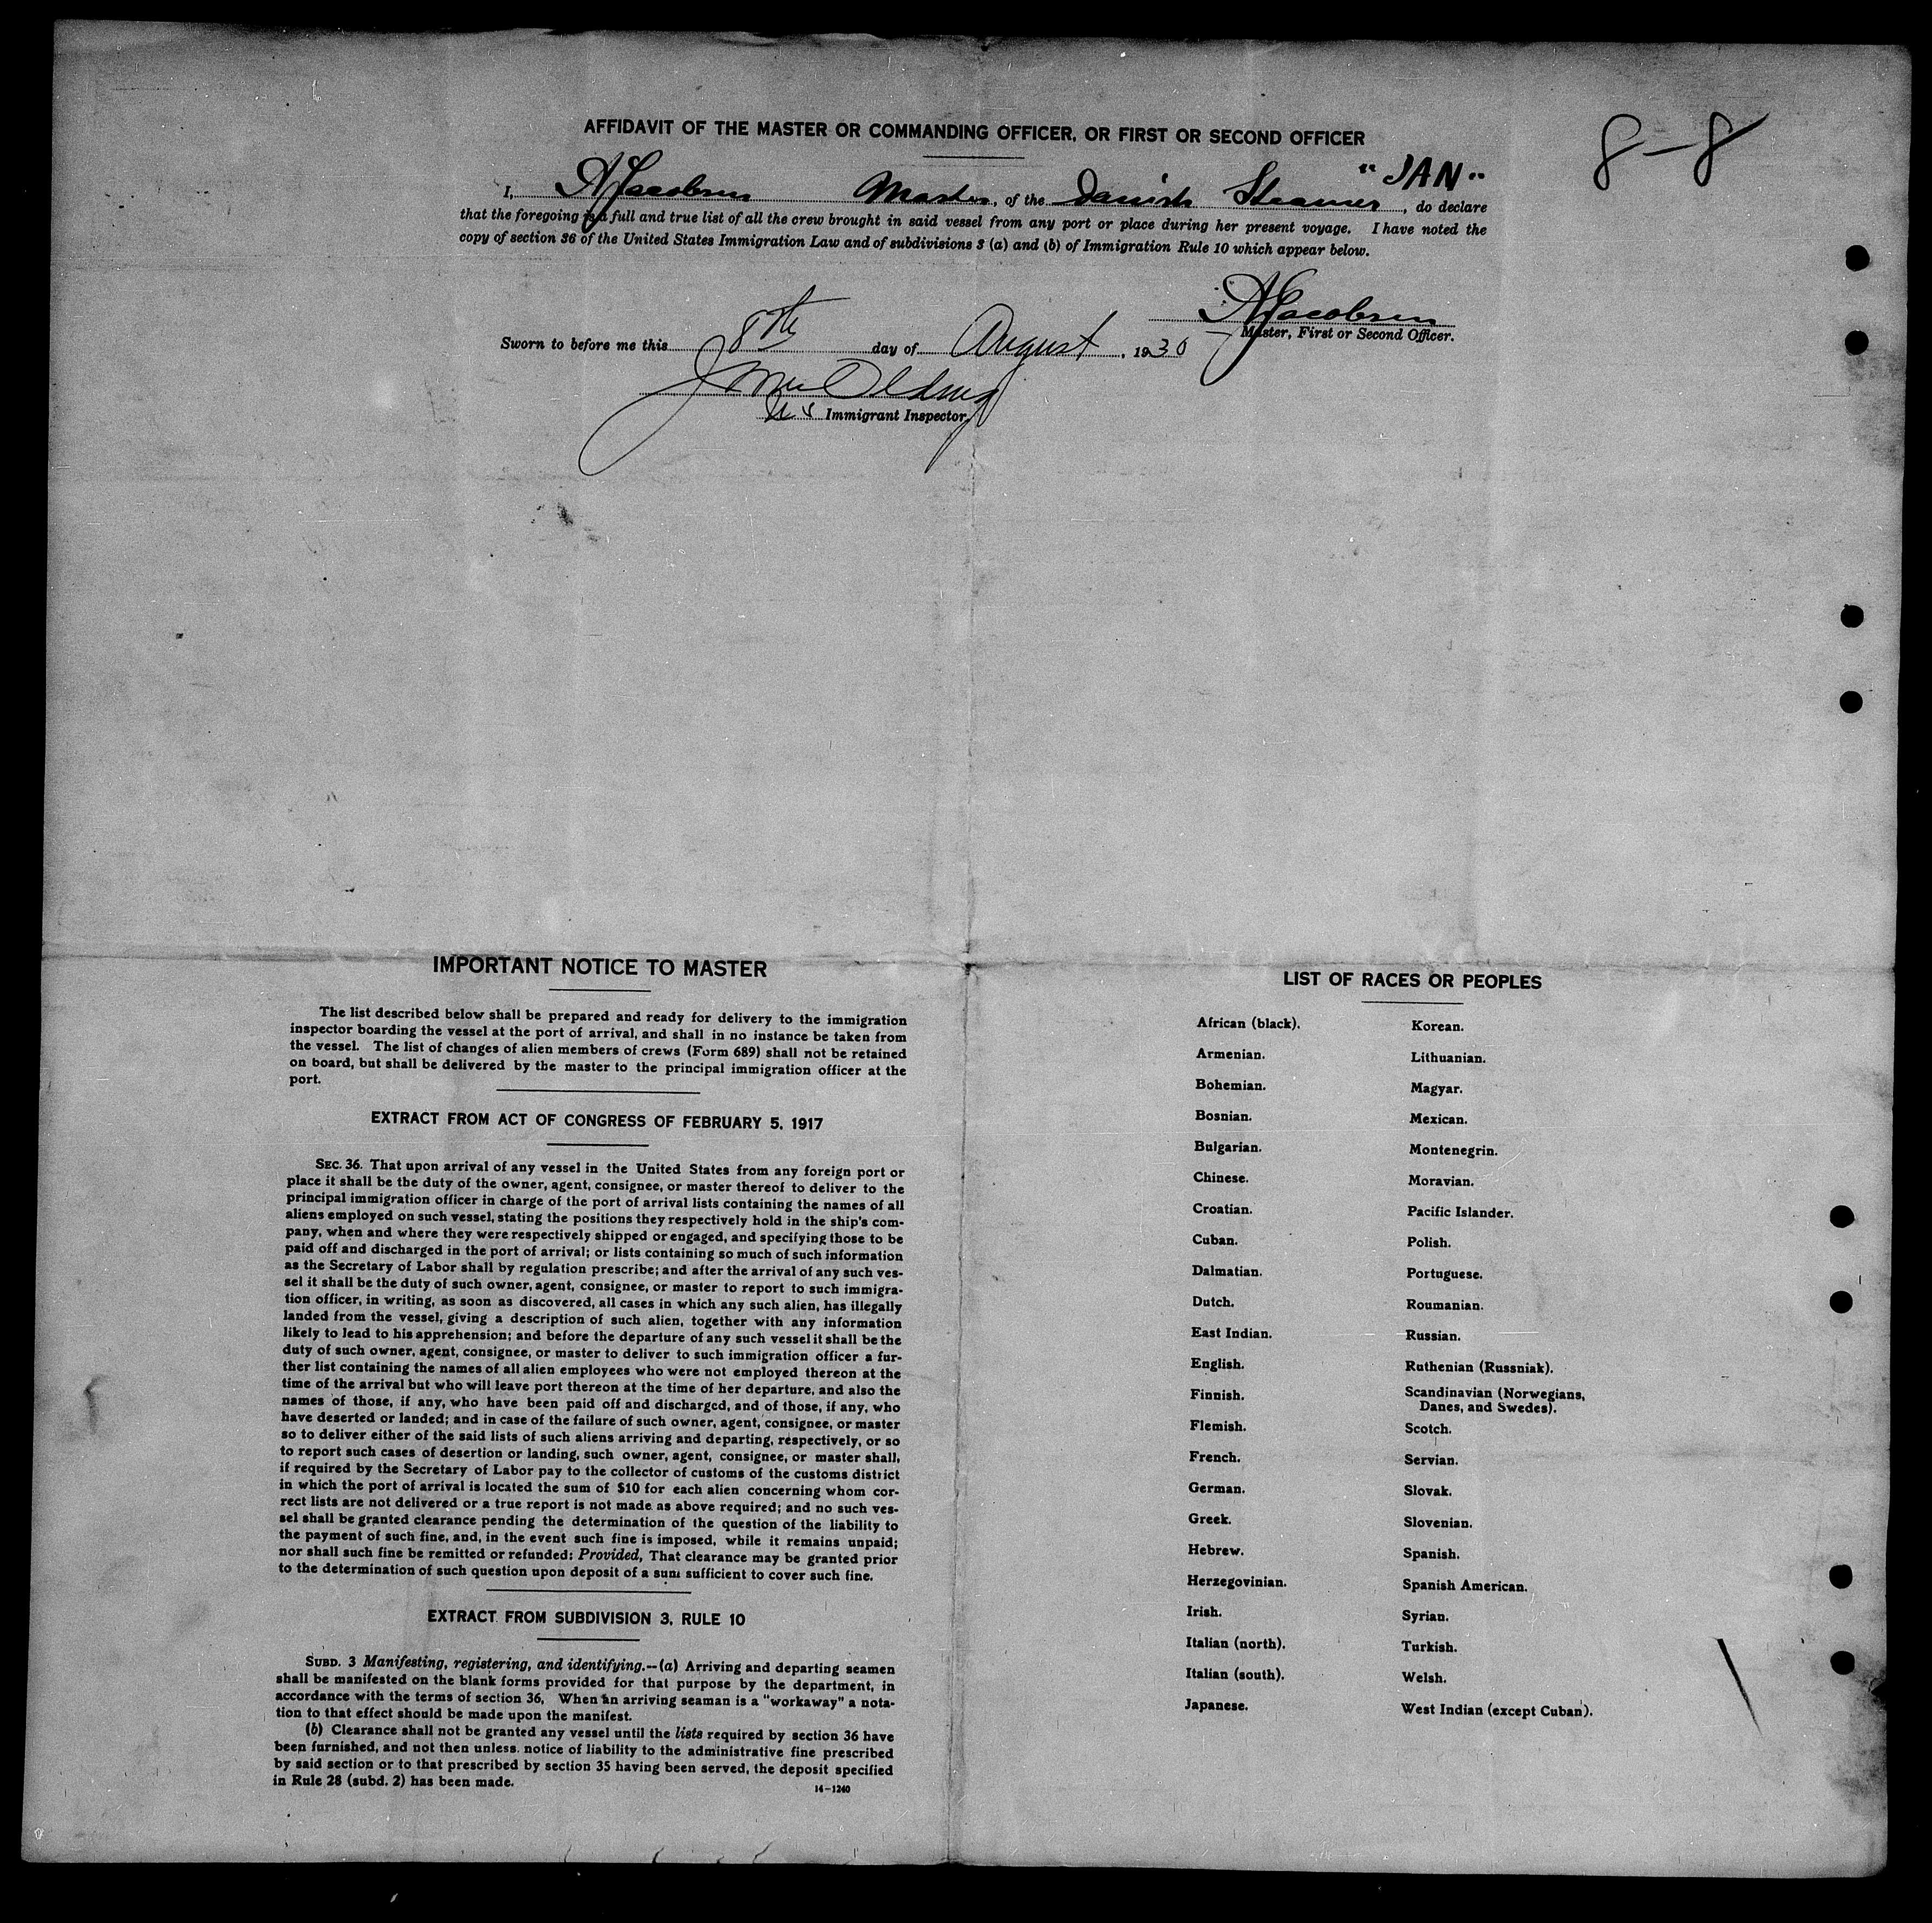 8-8
AFFIDAVIT OF THE MASTER OR COMMANDING OFFICER, OR FIRST OR SECOND OFFICER
"JAN"
I, A Jacobsen Master, of the Danish Steamer, do declare
that the foregoing is a full and true list of all the crew brought in said vessel from any port or place during her present voyage. I have noted the
copy of section 36 of the United States Immigration Law and of subdivisions 3 (a) and (b) of Immigration Rule 10 which appear below.
A Jacobsen
Master, First or Second Officer.
Sworn to before me this 8th day of August, 1930
US Immigrant Inspector.
IMPORTANT NOTICE TO MASTER
The list described below shall be prepared and ready for delivery to the immigration
inspector boarding the vessel at the port of arrival, and shall in no instance be taken from
the vessel. The list of changes of alien members of crews (Form 689) shall not be retained
on board, but shall be delivered by the master to the principal immigration officer at the
port.
EXTRACT FROM ACT OF CONGRESS OF FEBRUARY 5, 1917
SEC. 36. That upon arrival of any vessel in the United States from any foreign port or
place it shall be the duty of the owner, agent, consignee, or master thereof to deliver to the
principal immigration officer in charge of the port of arrival lists containing the names of all
aliens employed on such vessel, stating the positions they respectively hold in the ship's com-
pany, when and where they were respectively shipped or engaged, and specifying those to be
paid off and discharged in the port of arrival; or lists containing so much of such information
as the Secretary of Labor shall by regulation prescribe; and after the arrival of any such ves-
sel it shall be the duty of such owner, agent, consignee, or master to report to such immigra-
tion officer, in writing, as soon as discovered, all cases in which any such alien, has illegally
landed from the vessel, giving a description of such alien, together with any information
likely to lead to his apprehension; and before the departure of any such vessel it shall be the
duty of such owner, agent, consignee, or master to deliver to such immigration officer a fur-
ther list containing the names of all alien employees who were not employed thereon at the
time of the arrival but who will leave port thereon at the time of her departure, and also the
names of those, if any, who have been paid off and discharged, and of those, if any, who
have deserted or landed; and in case of the failure of such owner, agent, consignee, or master
so to deliver either of the said lists of such aliens arriving and departing, respectively, or so
to report such cases of desertion or landing, such owner, agent, consignee, or master shall,
if required by the Secretary of Labor pay to the collector of customs of the customs district
in which the port of arrival is located the sum of $10 for each alien concerning whom cor-
rect lists are not delivered or a true report is not made as above required; and no such ves-
sel shall be granted clearance pending the determination of the question of the liability to
the payment of such fine, and, in the event such fine is imposed, while it remains unpaid;
nor shall such fine be remitted or refunded: Provided, That clearance may be granted prior
to the determination of such question upon deposit of a sum sufficient to cover such fine.
EXTRACT FROM SUBDIVISION 3, RULE 10
SUBD. 3 Manifesting, registering, and identifying.--(a) Arriving and departing seamen
shall be manifested on the blank forms provided for that purpose by the department, in
accordance with the terms of section 36. When an arriving seaman is a "workaway" a nota-
tion to that effect should be made upon the manifest.
(b) Clearance shall not be granted any vessel until the lists required by section 36 have
been furnished, and not then unless notice of liability to the administrative fine prescribed
by said section or to that prescribed by section 35 having been served, the deposit specified
in Rule 28 (subd. 2) has been made.
14-1240
LIST OF RACES OR PEOPLES
African (black).
Armenian.
Bohemian.
Bosnian.
Bulgarian.
Chinese.
Croatian.
Cuban.
Dalmatian.
Dutch.
East Indian.
English.
Finnish.
Flemish.
French.
German.
Greek.
Hebrew.
Herzegovinian.
Irish.
Italian (north).
Italian (south).
Japanese.
Korean.
Lithuanian.
Magyar.
Mexican.
Montenegrin.
Moravian.
Pacific Islander.
Polish.
Portuguese.
Roumanian.
Russian.
Ruthenian (Russniak).
Scandinavian (Norwegians,
Danes, and Swedes).
Scotch.
Servian.
Slovak.
Slovenian.
Spanish.
Spanish American.
Syrian.
Turkish.
Welsh.
West Indian (except Cuban).